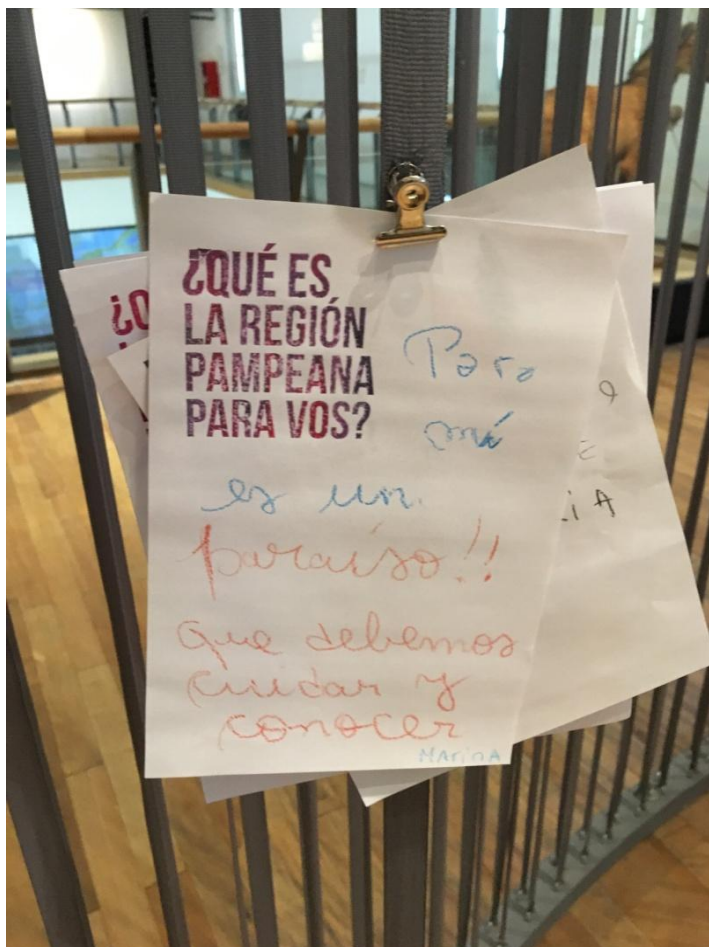 ¿QUÉ ES
LA REGIÓN
PAMPEANA
PARA VOS?
Para
mí
es un
paraíso!!
que debemos
cuidar y
conocer
MArinA